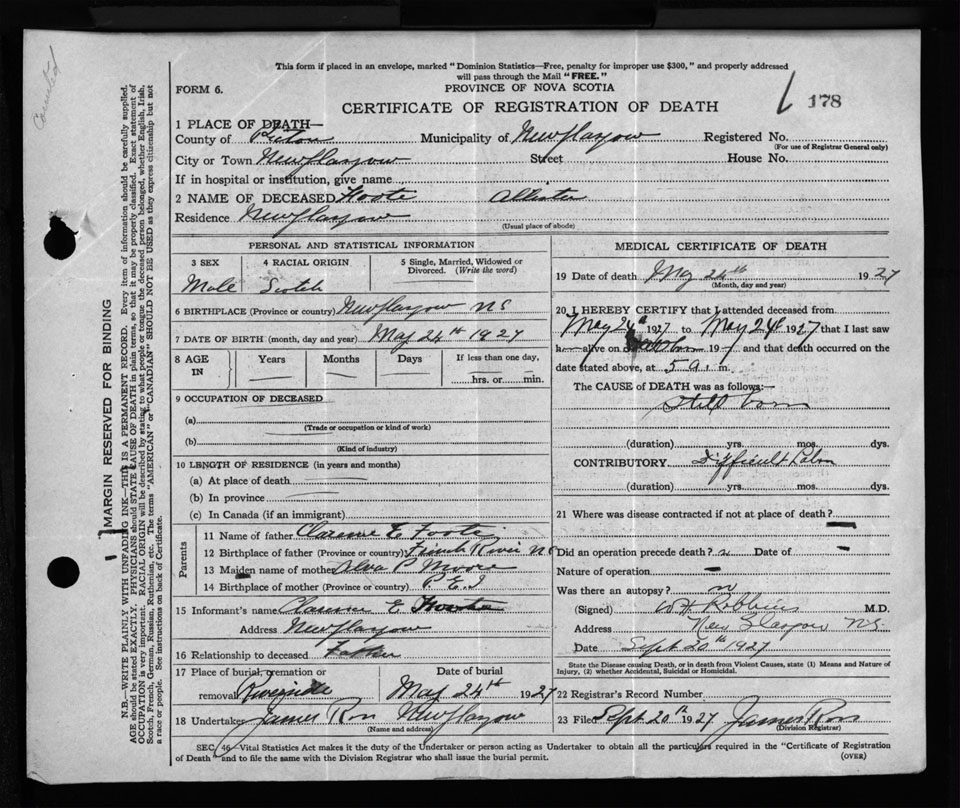 Cancelled
This form if placed in an envelope, marked "Dominion Statistics—Free, penalty for improper use $300," and properly addressed
will pass through the Mail "FREE."
FORM 6.
PROVINCE OF NOVA SCOTIA
CERTIFICATE OF REGISTRATION OF DEATH
178
1 PLACE OF DEATH—
County of Pictou Municipality of New Glasgow Registered No.
(For use of Registrar General only)
City or Town New Glasgow Street House No.
If in hospital or institution, give name
2 NAME OF DECEASED Foote Allister
Residence New Glasgow
(Usual place of abode)
PERSONAL AND STATISTICAL INFORMATION
3 SEX 4 RACIAL ORIGIN 5 Single, Married, Widowed or
Divorced. (Write the word)
Male Scotch
6 BIRTHPLACE (Province or country) New Glasgow NS
7 DATE OF BIRTH (month, day and year) May 24th 1927
8 AGE IN Years Months Days If less than one day,
hrs. or min.
9 OCCUPATION OF DECEASED
(a)
(Trade or occupation or kind of work)
(b)
(Kind of industry)
10 LENGTH OF RESIDENCE (in years and months)
(a) At place of death
(b) In province
(c) In Canada (if an immigrant)
Parents
11 Name of father Clarence E Foote
12 Birthplace of father (Province or country) French River NS
13 Maiden name of mother Alva P Moore
14 Birthplace of mother (Province or country) P E I
15 Informant's name Clarence E Foote
Address New Glasgow
16 Relationship to deceased Father
17 Place of burial, cremation or Date of burial
removal Riverside May 24th 1927
18 Undertaker James Ross New Glasgow
(Name and address)
MEDICAL CERTIFICATE OF DEATH
19 Date of death May 24th 1927
(Month, day and year)
20 I HEREBY CERTIFY that I attended deceased from
May 24th 1927 to May 24th 1927 that I last saw
h alive on 19 and that death occurred on the
date stated above, at 5 a. m.
The CAUSE of DEATH was as follows:—
Still born
(duration) yrs. mos. dys.
CONTRIBUTORY Difficult Labor
(duration) yrs. mos. dys.
21 Where was disease contracted if not at place of death?
Did an operation precede death? n Date of
Nature of operation
Was there an autopsy? n
(Signed) W H Robbins M.D.
Address New Glasgow NS.
Date Sept 20th 1927
State the Disease causing Death, or in death from Violent Causes, state (1) Means and Nature of
Injury, (2) whether Accidental, Suicidal or Homicidal.
22 Registrar's Record Number
23 Filed Sept 20th 1927 James Ross
(Division Registrar)
SEC. 46—Vital Statistics Act makes it the duty of the Undertaker or person acting as Undertaker to obtain all the particulars required in the "Certificate of Registration
of Death" and to file the same with the Division Registrar who shall issue the burial permit.
(OVER)
MARGIN RESERVED FOR BINDING
N.B.—WRITE PLAINLY WITH UNFADING INK—THIS IS A PERMANENT RECORD. Every item of information should be carefully supplied.
AGE should be stated EXACTLY. PHYSICIANS should STATE CAUSE OF DEATH in plain terms, so that it may be properly classified. Exact statement of
OCCUPATION is very important. RACIAL ORIGIN will be described by stating to what people or tongue the deceased person belonged, whether English, Irish,
Scotch, French, German, Russian, Ruthenian, etc. The terms "AMERICAN" or "CANADIAN" SHOULD NOT BE USED as they express citizenship but not
a race or people. See instructions on back of Certificate.